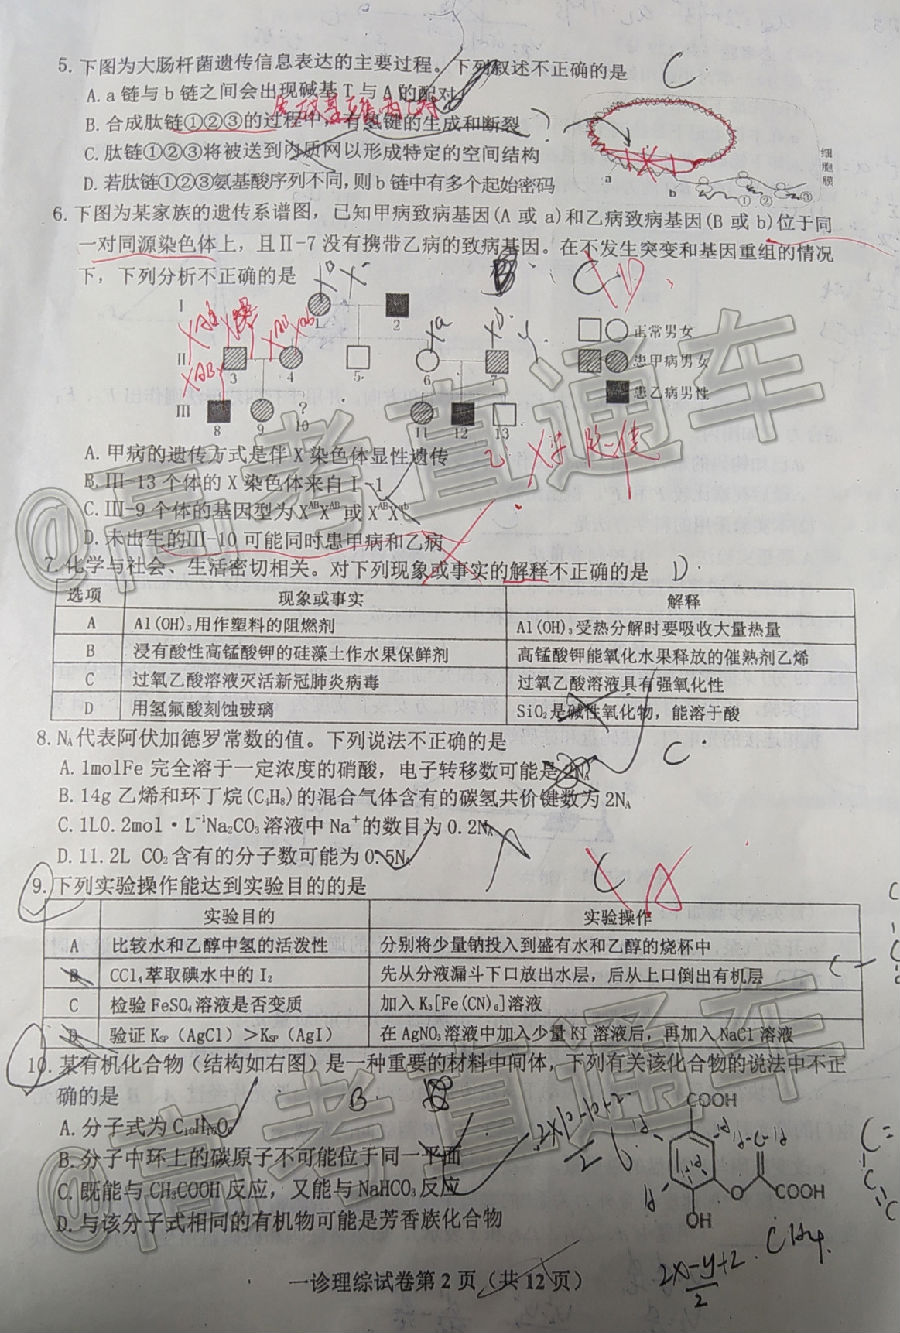 5. 下图为大肠杆菌遗传信息表达的主要过程。下列叙述不正确的是 C
A. a 链与 b 链之间会出现碱基 T 与 A 的配对
B. 合成肽链①②③的过程中,有氢键的生成和断裂
C. 肽链①②③将被送到内质网以形成特定的空间结构
D. 若肽链①②③氨基酸序列不同,则 b 链中有多个起始密码
细胞膜
a b ① ② ③
6. 下图为某家族的遗传系谱图，已知甲病致病基因(A 或 a)和乙病致病基因(B 或 b)位于同
一对同源染色体上，且Ⅱ-7 没有携带乙病的致病基因。在不发生突变和基因重组的情况
下，下列分析不正确的是
Ⅰ 1 2
正常男女
Ⅱ 3 4 5 6 7
患甲病男女
患乙病男性
Ⅲ 8 9 10 11 12 13
?
A. 甲病的遗传方式是伴 X 染色体显性遗传
B. Ⅲ-13 个体的 X 染色体来自 Ⅰ-1
C. Ⅲ-9 个体的基因型为 XᴬᴮXᴬᴮ 或 XᴬᴮXᵃᵇ
D. 未出生的Ⅲ-10 可能同时患甲病和乙病
7. 化学与社会、生活密切相关。对下列现象或事实的解释不正确的是 D
选项 现象或事实 解释
A Al(OH)₃用作塑料的阻燃剂 Al(OH)₃受热分解时要吸收大量热量
B 浸有酸性高锰酸钾的硅藻土作水果保鲜剂 高锰酸钾能氧化水果释放的催熟剂乙烯
C 过氧乙酸溶液灭活新冠肺炎病毒 过氧乙酸溶液具有强氧化性
D 用氢氟酸刻蚀玻璃 SiO₂是碱性氧化物，能溶于酸
8. Nᴀ代表阿伏加德罗常数的值。下列说法不正确的是 C
A. 1molFe 完全溶于一定浓度的硝酸，电子转移数可能是 2Nᴀ
B. 14g 乙烯和环丁烷(C₄H₈)的混合气体含有的碳氢共价键数为 2Nᴀ
C. 1L0.2mol·L⁻¹Na₂CO₃溶液中 Na⁺的数目为 0.2Nᴀ
D. 11.2L CO₂含有的分子数可能为 0.5Nᴀ
9. 下列实验操作能达到实验目的的是 C A
实验目的 实验操作
A 比较水和乙醇中氢的活泼性 分别将少量钠投入到盛有水和乙醇的烧杯中
B CCl₄萃取碘水中的 I₂ 先从分液漏斗下口放出水层，后从上口倒出有机层
C 检验 FeSO₄溶液是否变质 加入 K₃[Fe(CN)₆]溶液
D 验证 Kₛₚ（AgCl）＞Kₛₚ（AgI） 在 AgNO₃溶液中加入少量 KI 溶液后，再加入 NaCl 溶液
10. 某有机化合物（结构如右图）是一种重要的材料中间体，下列有关该化合物的说法中不正
确的是 B
A. 分子式为 C₁₀H₁₀O₆
B. 分子中环上的碳原子不可能位于同一平面
C. 既能与 CH₃COOH 反应，又能与 NaHCO₃反应
D. 与该分子式相同的有机物可能是芳香族化合物
COOH
O COOH
OH
一诊理综试卷第 2 页（共 12 页）
@高考直通车
@高考直通车